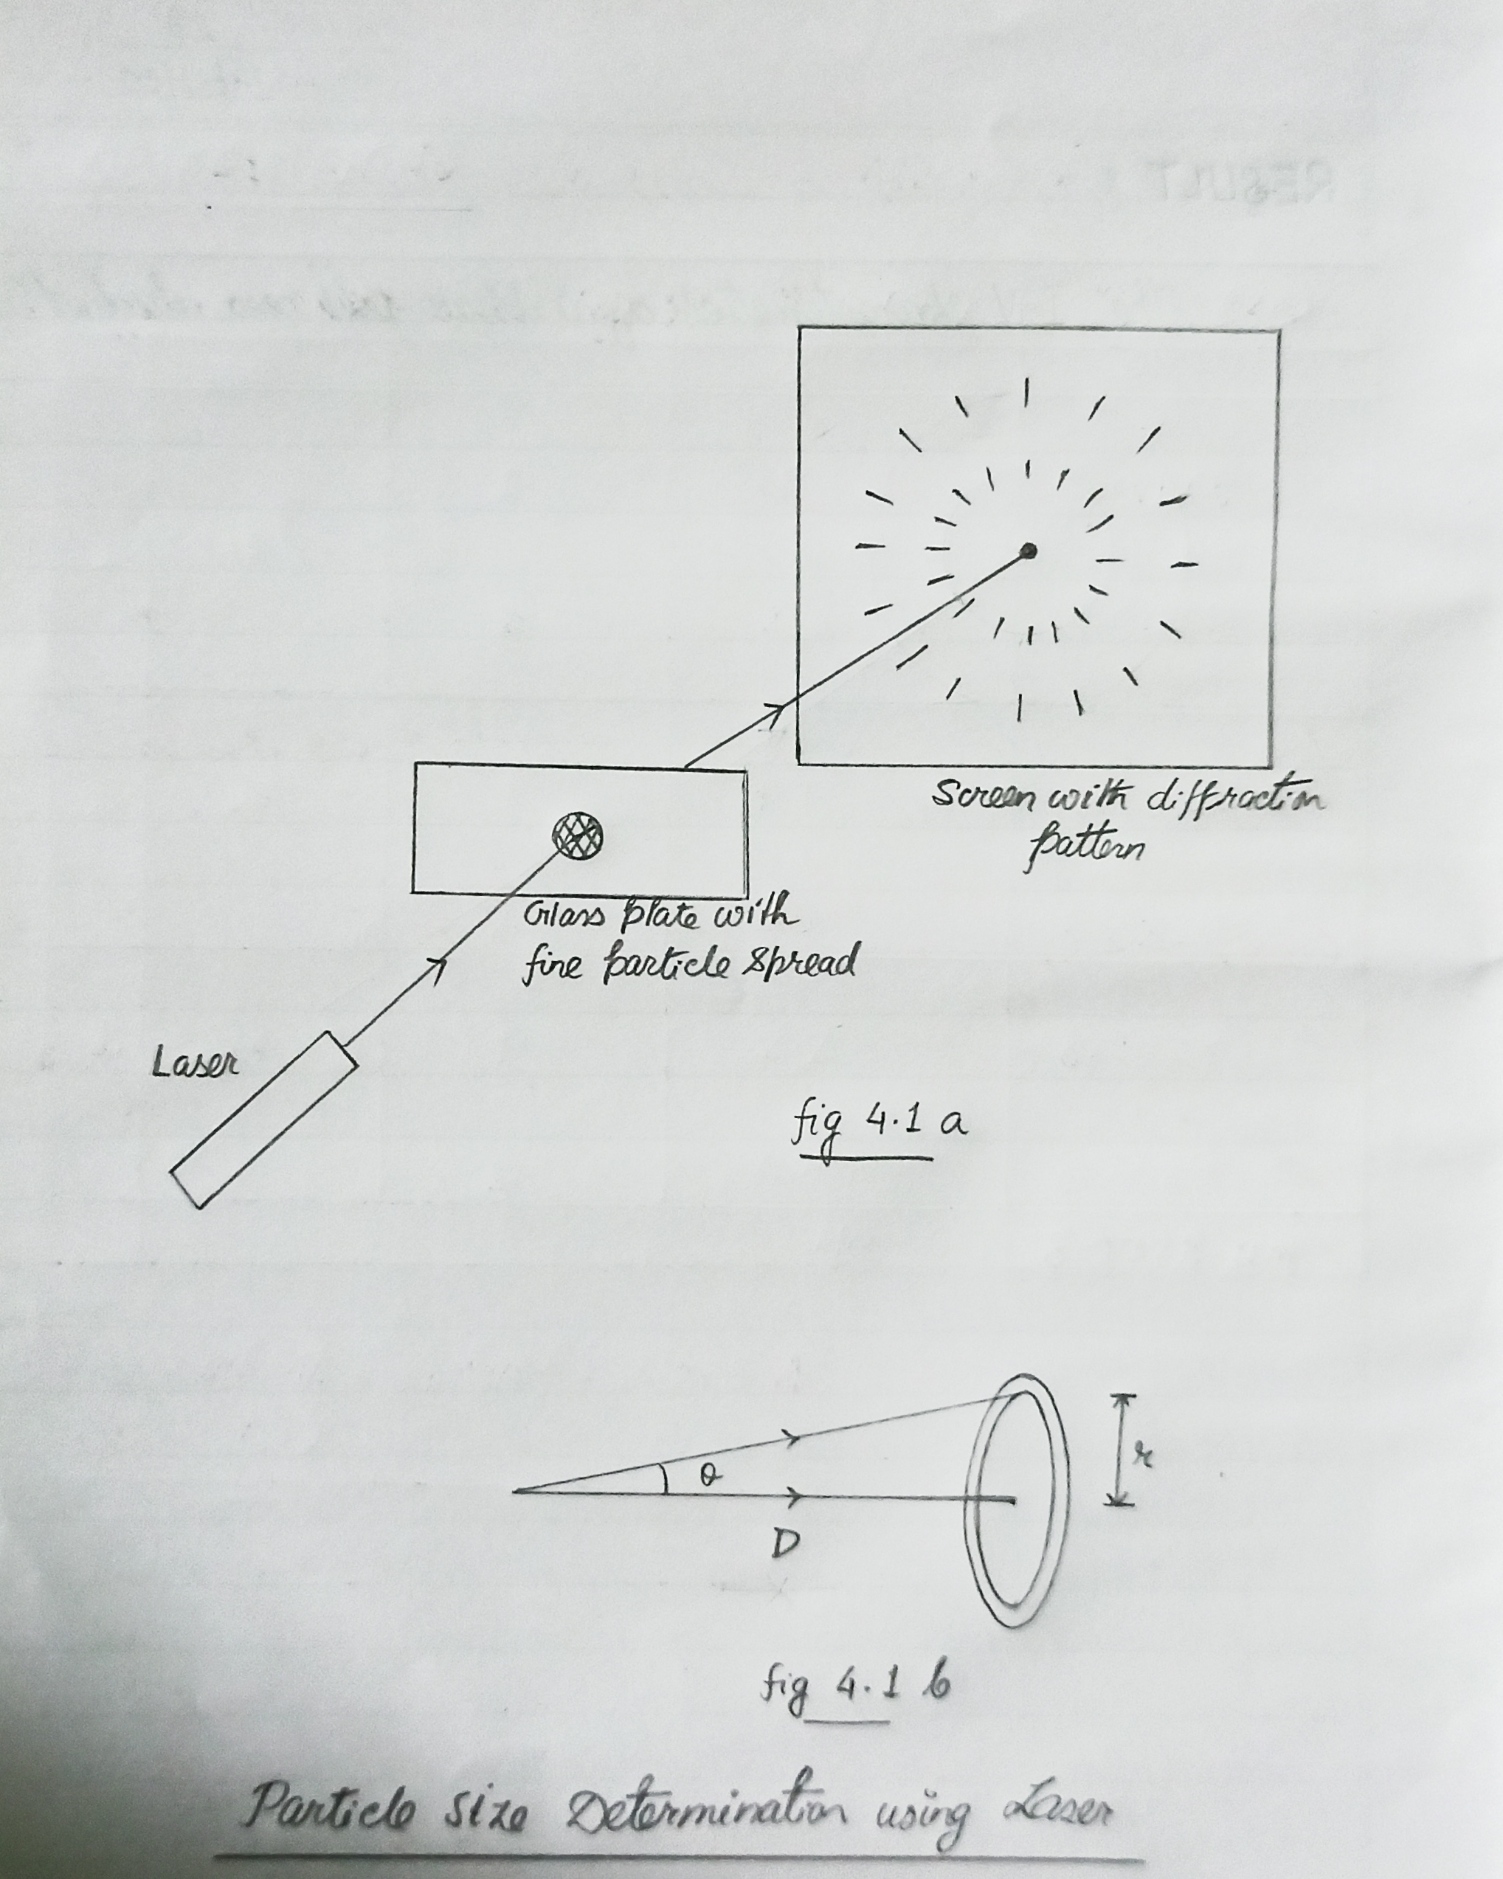 Screen with diffraction
pattern
Glass plate with
fine particle spread
Laser
fig 4.1 a
θ
r
D
fig 4.1 b
Particle size Determination using Laser